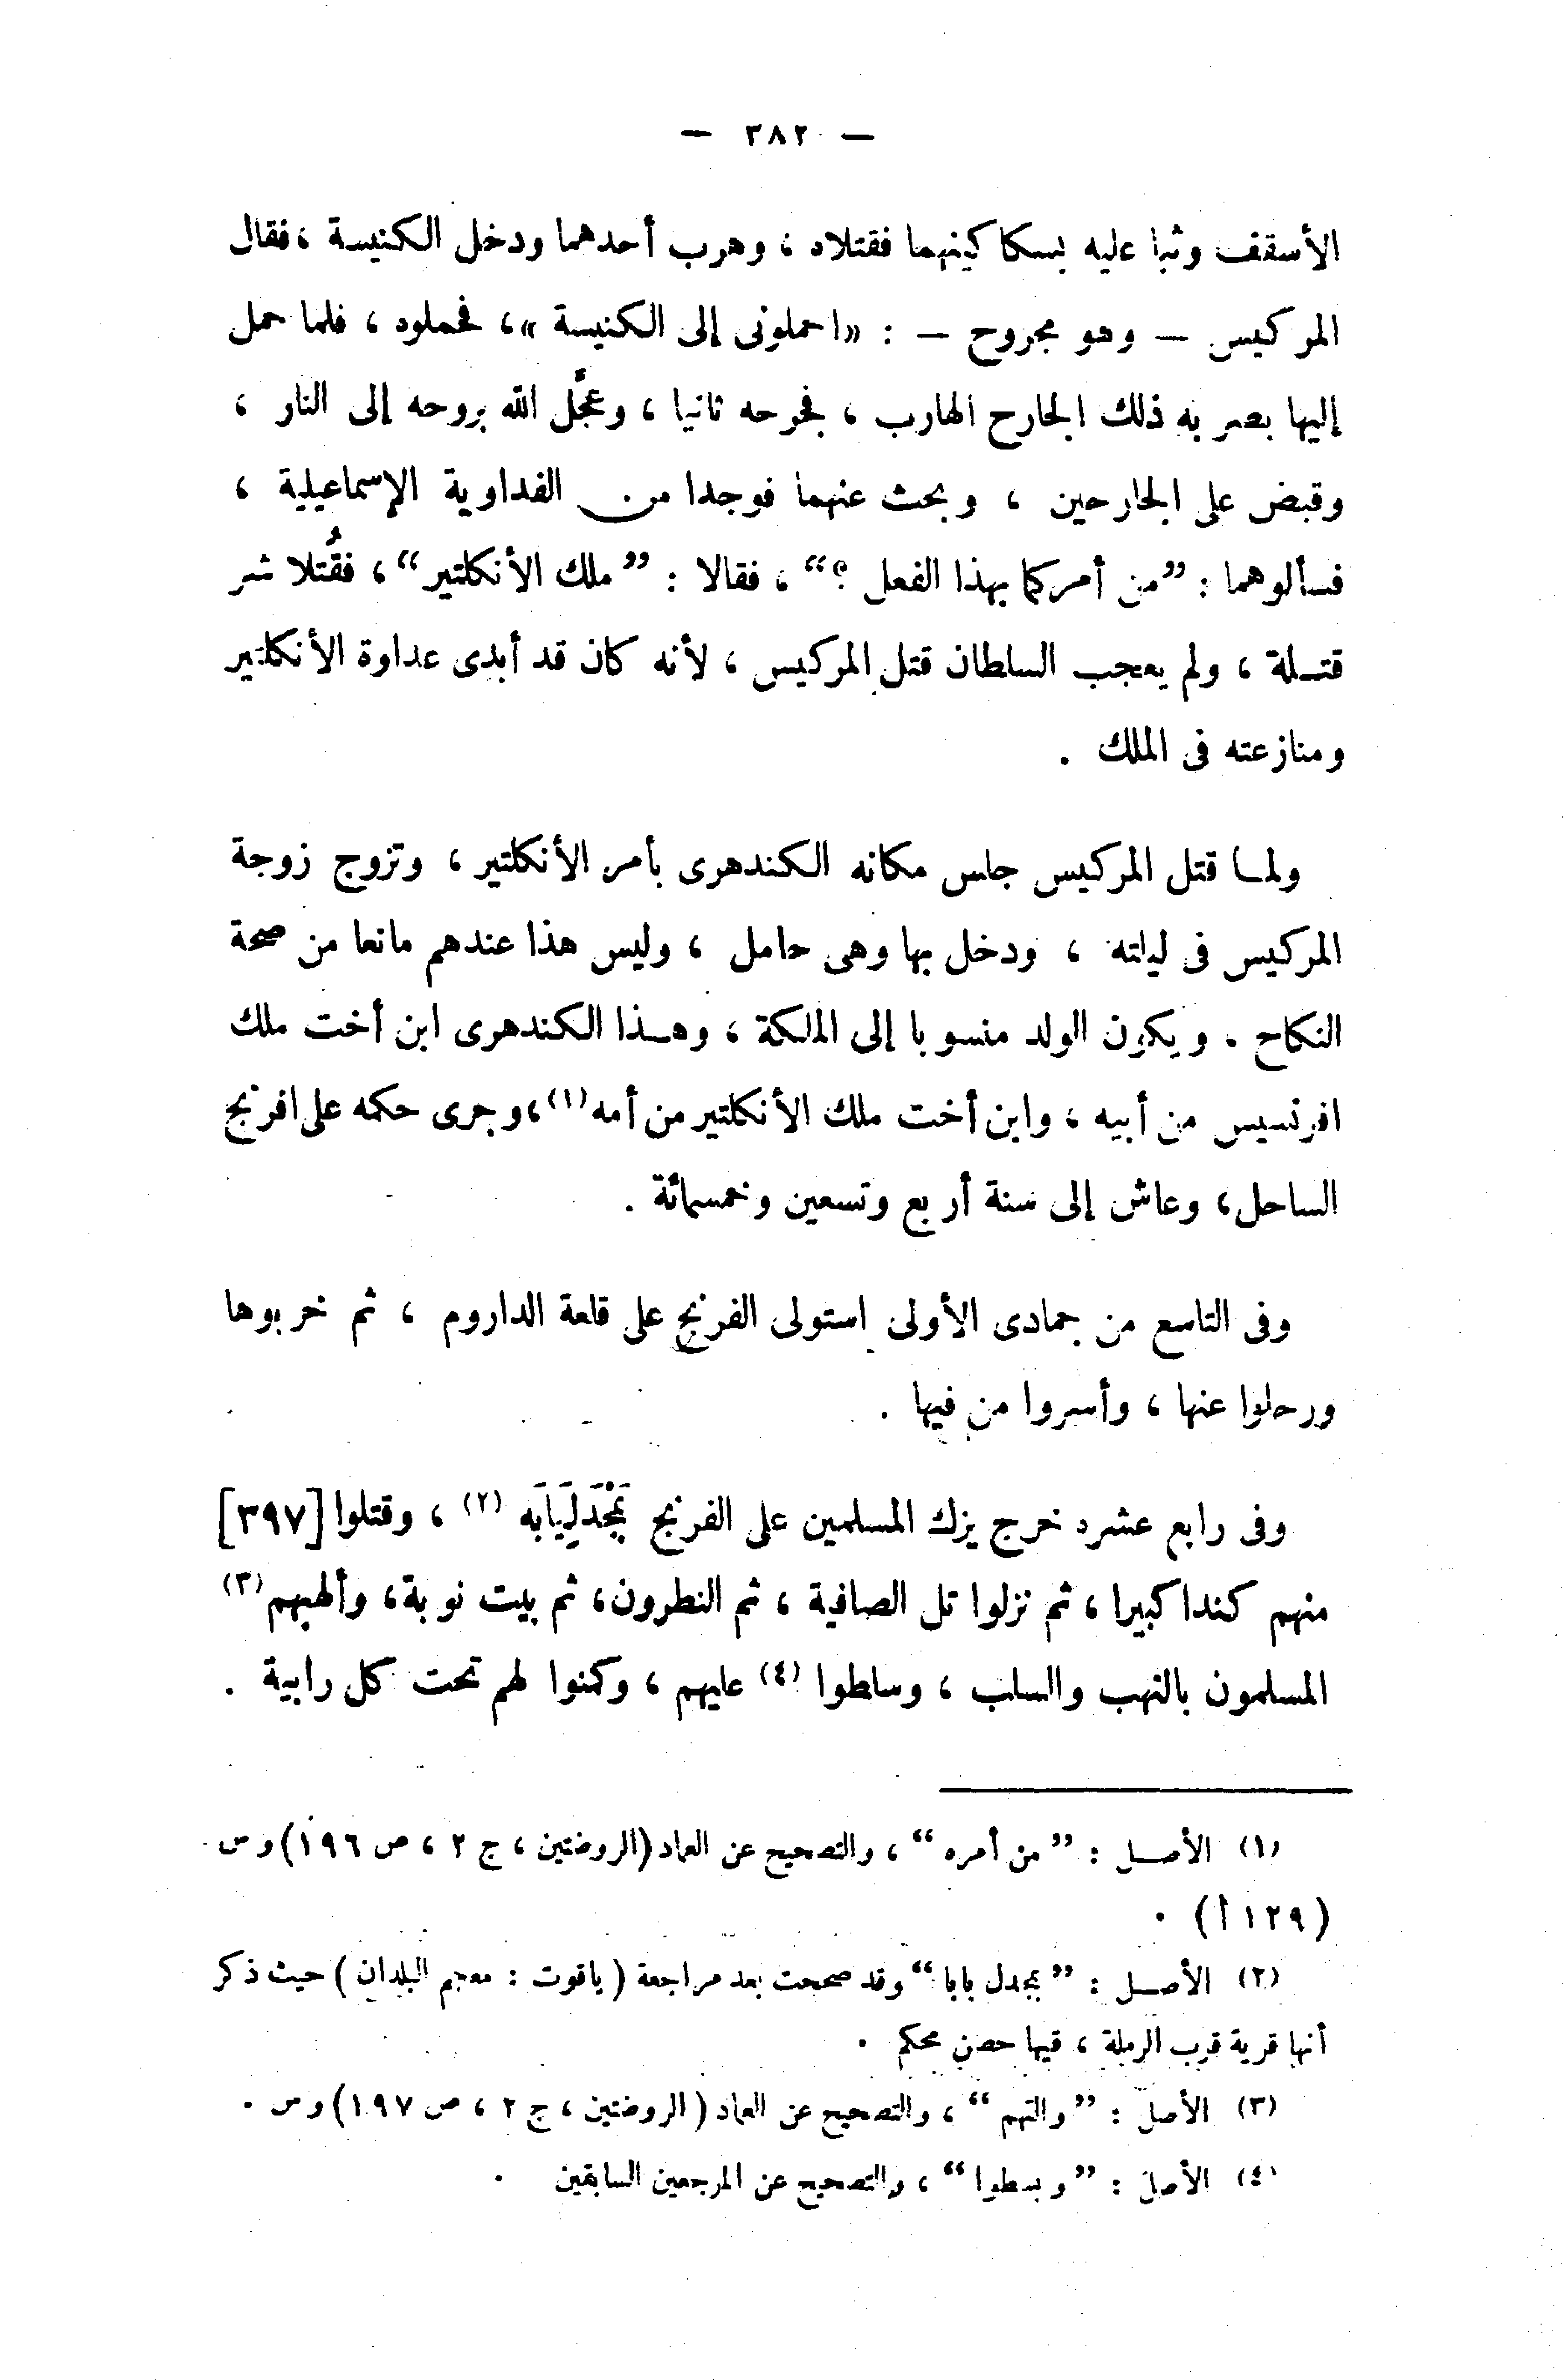 — ٣٨٢ —
الأسقف وثبا عليه بسكاكينهما فقتلاه ، وهرب أحدهما ودخل الكنيسة ، فقال
المركيس — وهو مجروح — : «احملونى إلى الكنيسة » ، فحملوه ، فلما حمل
إليها بصر به ذلك الجارح الهارب ، فجرحه ثانيا ، وعجَّل الله بروحه إلى النار ،
وقبض على الجارحين ، وبحث عنهما فوجدا من الفداوية الإسماعيلية ،
فسألوهما : ”من أمركما بهذا الفعل ؟“ ، فقالا : ”ملك الأنكلتير“ ، فقُتلا شر
قتـلة ، ولم يعجب السلطان قتل المركيس ، لأنه كان قد أبدى عداوة الأنكلتير
ومنازعته فى الملك .
ولمـا قتل المركيس جلس مكانه الكندهرى بأمر الأنكلتير ، وتزوج زوجة
المركيس فى ليلته ، ودخل بها وهى حامل ، وليس هذا عندهم مانعا من صحة
النكاح . ويكون الولد منسوبا إلى الملكة ، وهـذا الكندهرى ابن أخت ملك
افرنسيس من أبيه ، وابن أخت ملك الأنكلتير من أمه (١) ، وجرى حكمه على افرنج
الساحل ، وعاش إلى سنة أربع وتسعين وخمسمائة .
وفى التاسع من جمادى الأولى استولى الفرنج على قلعة الداروم ، ثم خربوها
ورحلوا عنها ، وأسروا من فيها .
وفى رابع عشره خرج يزك المسلمين على الفرنج بِمَجْدَلِيَابَه (٢) ، وقتلوا [٣٩٧]
منهم كندا كبيرا ، ثم نزلوا تل الصافية ، ثم النطرون ، ثم بيت نوبة ، وألهبهم (٣)
المسلمون بالنهب والسلب ، وسلطوا (٤) عليهم ، وكمنوا لهم تحت كل رابية .
(١) الأصـل : ”من أمره“ ، والتصحيح عن العماد (الروضتين ، ج ٢ ، ص ١٩٦) و س
(١٢٩ أ) .
(٢) الأصـل : ”بمجدل بابا“ وقد صححت بعد مراجعة (ياقوت : معجم البلدان) حيث ذكر
أنها قرية قرب الرملة ، فيها حصن محكم .
(٣) الأصل : ”والتهم“ ، والتصحيح عن العماد (الروضتين ، ج ٢ ، ص ١٩٧) و س .
(٤) الأصل : ”وبسطوا“ ، والتصحيح عن المرجعين السابقين .